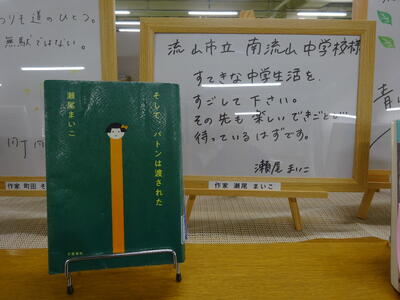 つりも道のひとつ。
無駄ではない。
作家 町田 そ
流山市立 南流山中学校様
すてきな中学生活を、
すごして下さい。
その先も楽しいできごとが…
待っているはずです。
瀬尾まいこ
作家 瀬尾 まいこ
そして、バトンは渡された
瀬尾まいこ
文藝春秋
青い